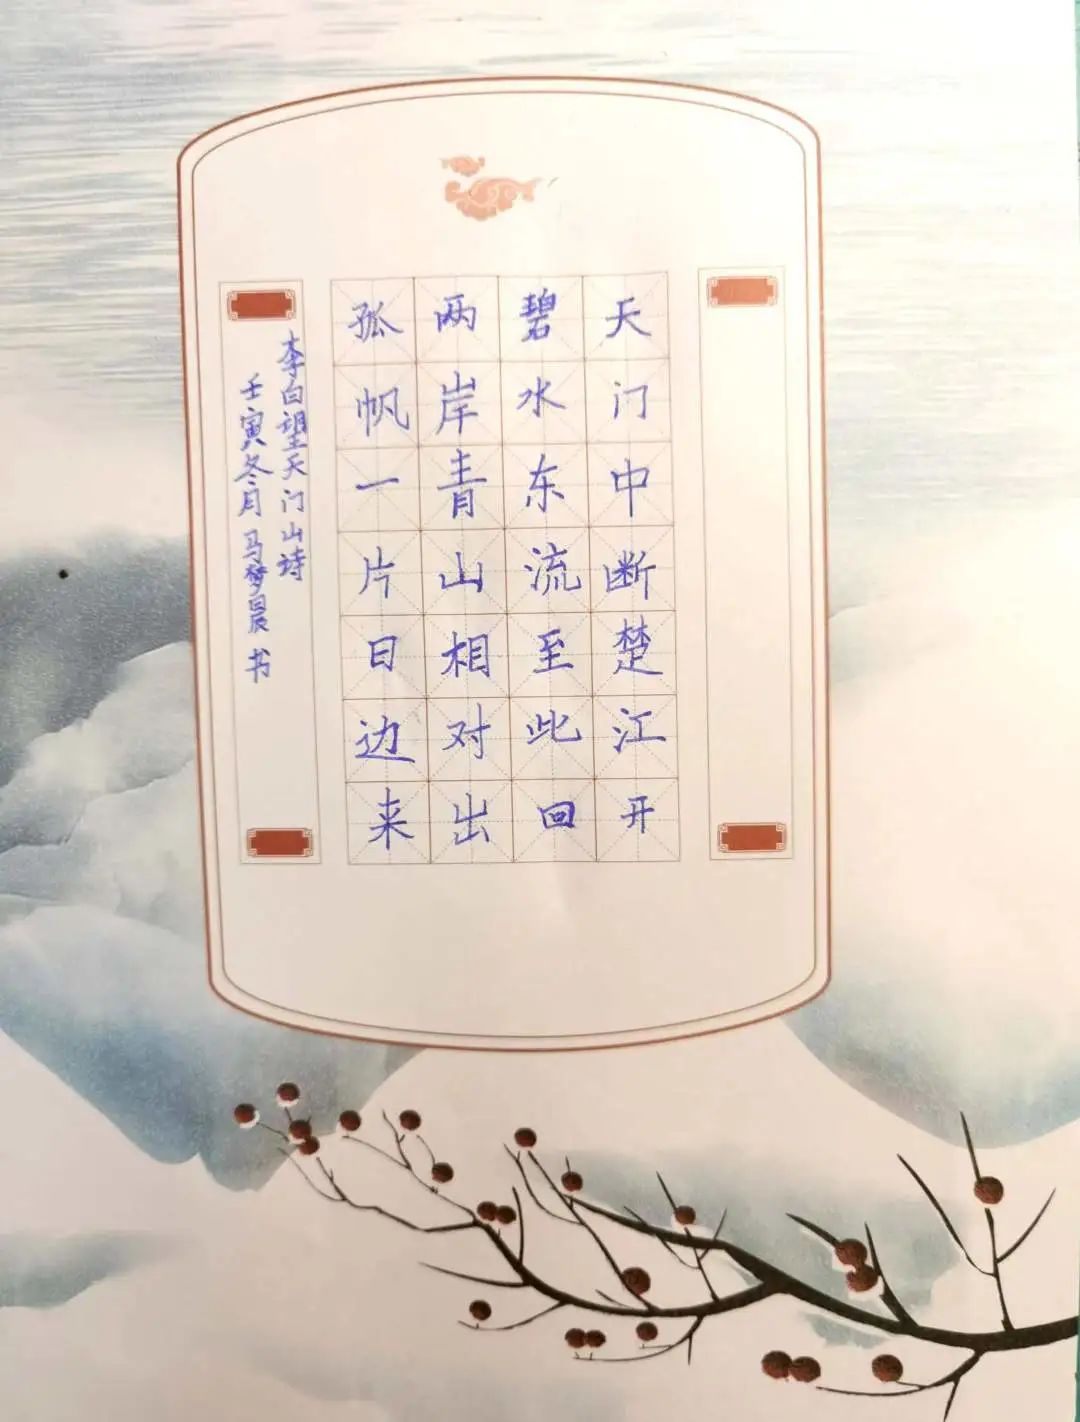 天门中断楚江开
碧水东流至此回
两岸青山相对出
孤帆一片日边来
李白望天门山诗
壬寅冬月马梦晨书